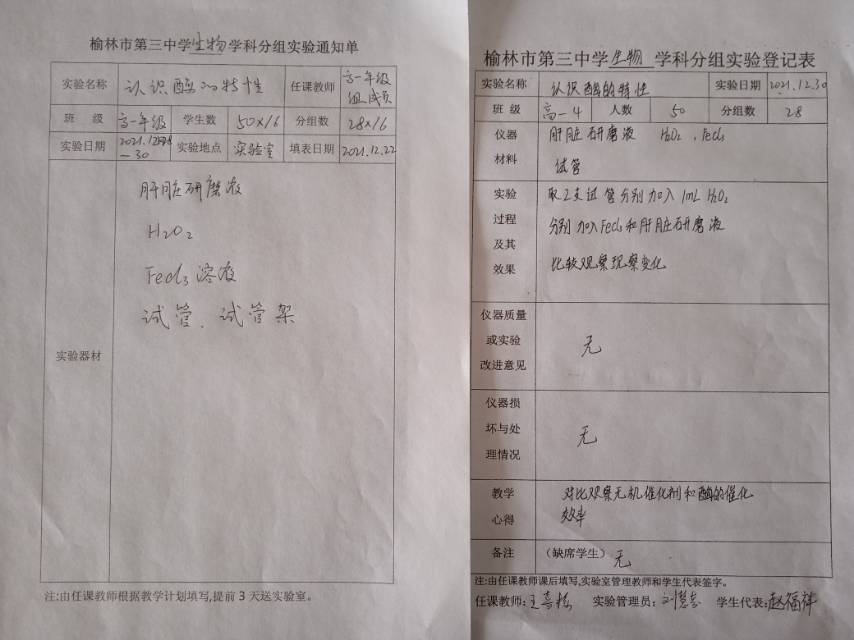 榆林市第三中学生物学科分组实验通知单
实验名称 认识酶的特性 任课教师 高一年级组成员
班 级 高一年级 学生数 50×16 分组数 28×16
实验日期 2021.12 —30 实验地点 实验室 填表日期 2021.12.22
实验器材
肝脏研磨液
H2O2
FeCl3溶液
试管、试管架
注:由任课教师根据教学计划填写,提前 3 天送实验室。
榆林市第三中学生物 学科分组实验登记表
实验名称 认识酶的特性 实验日期 2021.12.30
班 级 高一4 人数 50 分组数 28
仪器
材料
肝脏研磨液 H2O2 , FeCl3
试管
实验
过程
及其
效果
取2支试管分别加入1mL H2O2
分别加入FeCl3和肝脏研磨液
比较观察现察变化
仪器质量
或实验
改进意见
无
仪器损
坏与处
理情况
无
教学
心得
对比观察无机催化剂和酶的催化
效率
备注 (缺席学生) 无
注:由任课教师课后填写,实验室管理教师和学生代表签字。
任课教师: 王 实验管理员: 刘 学生代表:赵福祥